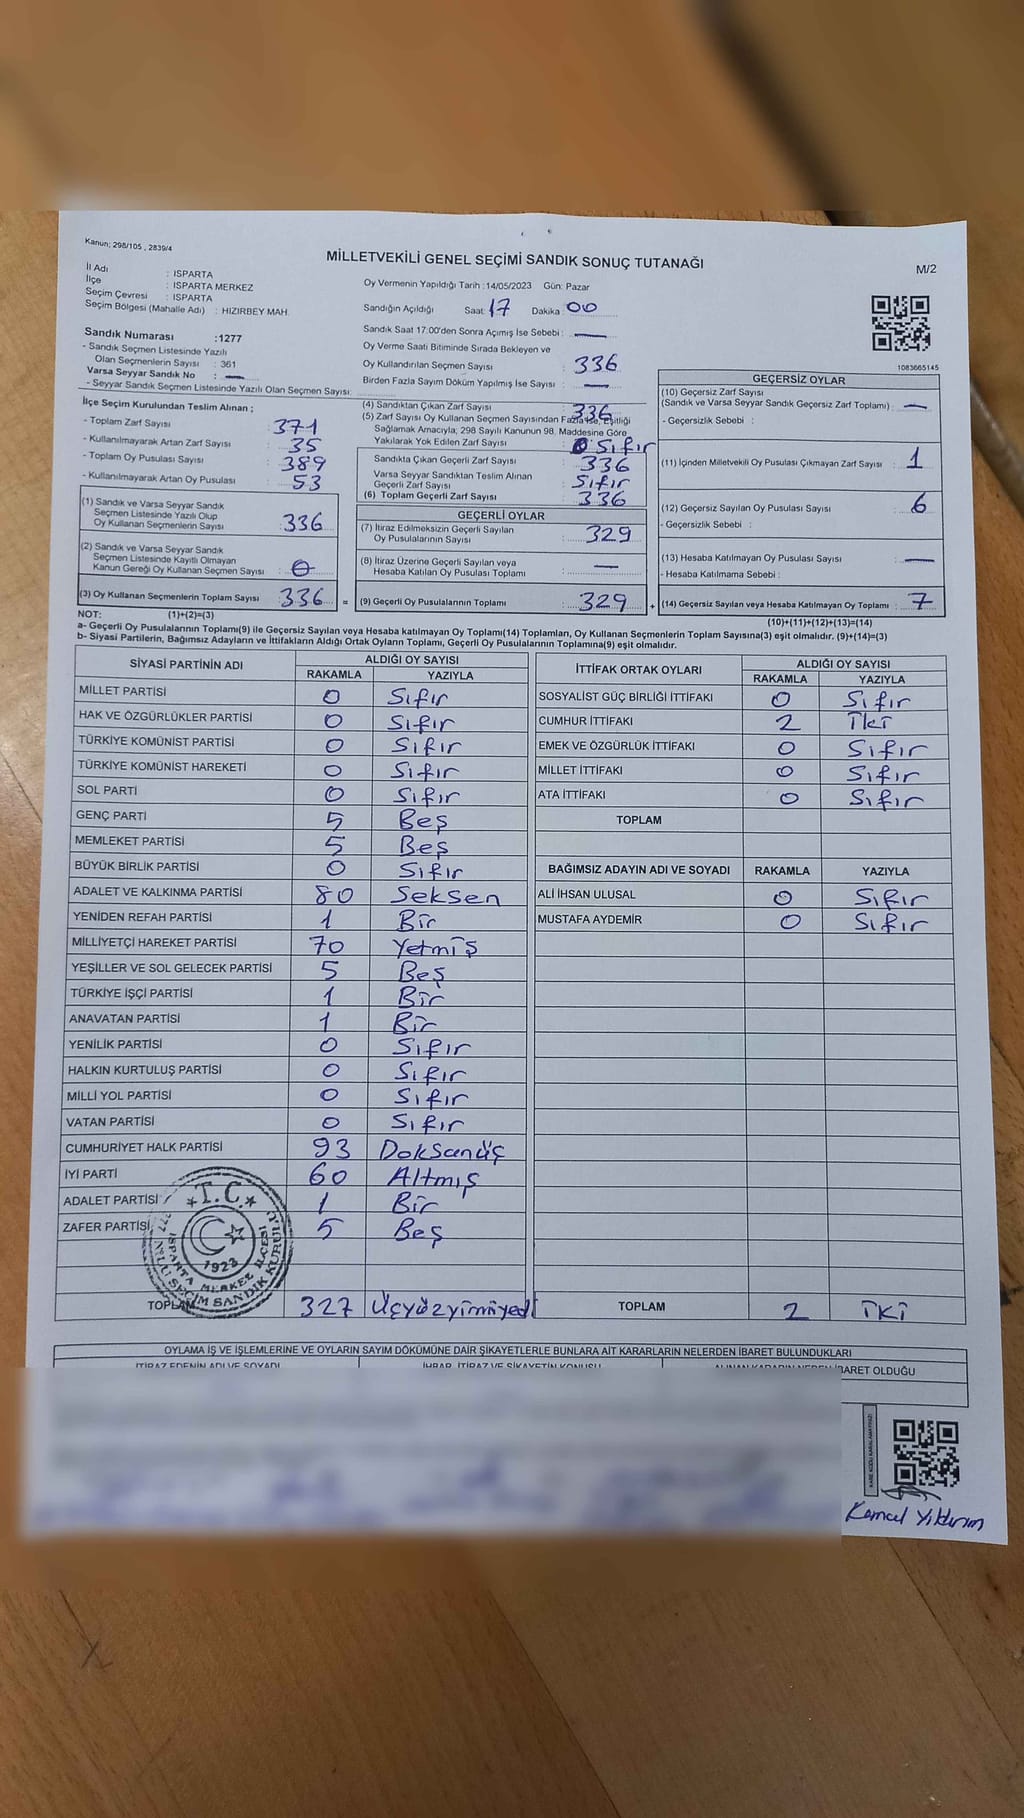 Kanun; 298/105 , 2839/4
MİLLETVEKİLİ GENEL SEÇİMİ SANDIK SONUÇ TUTANAĞI
M/2
İl Adı : ISPARTA
İlçe : ISPARTA MERKEZ
Seçim Çevresi : ISPARTA
Seçim Bölgesi (Mahalle Adı) : HIZIRBEY MAH.
Oy Vermenin Yapıldığı Tarih :14/05/2023 Gün: Pazar
Sandığın Açıldığı Saat: 17 Dakika : 00
Sandık Saat 17:00'den Sonra Açımış İse Sebebi : —
Oy Verme Saati Bitiminde Sırada Bekleyen ve
Oy Kullandırılan Seçmen Sayısı 336
Birden Fazla Sayım Döküm Yapılmış İse Sayısı : —
1083665145
Sandık Numarası :1277
- Sandık Seçmen Listesinde Yazılı
Olan Seçmenlerin Sayısı : 361
Varsa Seyyar Sandık No : —
- Seyyar Sandık Seçmen Listesinde Yazılı Olan Seçmen Sayısı:
İlçe Seçim Kurulundan Teslim Alınan ;
- Toplam Zarf Sayısı : 371
- Kullanılmayarak Artan Zarf Sayısı : 35
- Toplam Oy Pusulası Sayısı : 389
- Kullanılmayarak Artan Oy Pusulası : 53
(1) Sandık ve Varsa Seyyar Sandık
Seçmen Listesinde Yazılı Olup
Oy Kullanan Seçmenlerin Sayısı : 336
(2) Sandık ve Varsa Seyyar Sandık
Seçmen Listesinde Kayıtlı Olmayan
Kanun Gereği Oy Kullanan Seçmen Sayısı : 0
(3) Oy Kullanan Seçmenlerin Toplam Sayısı : 336 =
(4) Sandıktan Çıkan Zarf Sayısı : 336
(5) Zarf Sayısı Oy Kullanan Seçmen Sayısından Fazla İse, Eşitliği
Sağlamak Amacıyla; 298 Sayılı Kanunun 98. Maddesine Göre
Yakılarak Yok Edilen Zarf Sayısı : Sıfır
Sandıkta Çıkan Geçerli Zarf Sayısı : 336
Varsa Seyyar Sandıktan Teslim Alınan
Geçerli Zarf Sayısı : Sıfır
(6) Toplam Geçerli Zarf Sayısı : 336
GEÇERLİ OYLAR
(7) İtiraz Edilmeksizin Geçerli Sayılan
Oy Pusulalarının Sayısı : 329
(8) İtiraz Üzerine Geçerli Sayılan veya
Hesaba Katılan Oy Pusulası Toplamı : —
(9) Geçerli Oy Pusulalarının Toplamı : 329 +
GEÇERSİZ OYLAR
(10) Geçersiz Zarf Sayısı
(Sandık ve Varsa Seyyar Sandık Geçersiz Zarf Toplamı) : —
- Geçersizlik Sebebi :
(11) İçinden Milletvekili Oy Pusulası Çıkmayan Zarf Sayısı : 1
(12) Geçersiz Sayılan Oy Pusulası Sayısı : 6
- Geçersizlik Sebebi :
(13) Hesaba Katılmayan Oy Pusulası Sayısı : —
- Hesaba Katılmama Sebebi :
(14) Geçersiz Sayılan veya Hesaba Katılmayan Oy Toplamı : 7
NOT: (1)+(2)=(3) (10)+(11)+(12)+(13)=(14)
a- Geçerli Oy Pusulalarının Toplamı(9) ile Geçersiz Sayılan veya Hesaba katılmayan Oy Toplamı(14) Toplamları, Oy Kullanan Seçmenlerin Toplam Sayısına(3) eşit olmalıdır. (9)+(14)=(3)
b- Siyasi Partilerin, Bağımsız Adayların ve İttifakların Aldığı Ortak Oyların Toplamı, Geçerli Oy Pusulalarının Toplamına(9) eşit olmalıdır.
SİYASİ PARTİNİN ADI ALDIĞI OY SAYISI
RAKAMLA YAZIYLA
MİLLET PARTİSİ 0 Sıfır
HAK VE ÖZGÜRLÜKLER PARTİSİ 0 Sıfır
TÜRKİYE KOMÜNİST PARTİSİ 0 Sıfır
TÜRKİYE KOMÜNİST HAREKETİ 0 Sıfır
SOL PARTİ 0 Sıfır
GENÇ PARTİ 5 Beş
MEMLEKET PARTİSİ 5 Beş
BÜYÜK BİRLİK PARTİSİ 0 Sıfır
ADALET VE KALKINMA PARTİSİ 80 Seksen
YENİDEN REFAH PARTİSİ 1 Bir
MİLLİYETÇİ HAREKET PARTİSİ 70 Yetmiş
YEŞİLLER VE SOL GELECEK PARTİSİ 5 Beş
TÜRKİYE İŞÇİ PARTİSİ 1 Bir
ANAVATAN PARTİSİ 1 Bir
YENİLİK PARTİSİ 0 Sıfır
HALKIN KURTULUŞ PARTİSİ 0 Sıfır
MİLLİ YOL PARTİSİ 0 Sıfır
VATAN PARTİSİ 0 Sıfır
CUMHURİYET HALK PARTİSİ 93 Doksanüç
İYİ PARTİ 60 Altmış
ADALET PARTİSİ 1 Bir
ZAFER PARTİSİ 5 Beş
TOPLAM 327 Üçyüzyimiyedi
T.C.
1923
ISPARTA MERKEZ İLÇESİ
SEÇİM SANDIK KURULU
İTTİFAK ORTAK OYLARI ALDIĞI OY SAYISI
RAKAMLA YAZIYLA
SOSYALİST GÜÇ BİRLİĞİ İTTİFAKI 0 Sıfır
CUMHUR İTTİFAKI 2 İki
EMEK VE ÖZGÜRLÜK İTTİFAKI 0 Sıfır
MİLLET İTTİFAKI 0 Sıfır
ATA İTTİFAKI 0 Sıfır
TOPLAM
BAĞIMSIZ ADAYIN ADI VE SOYADI RAKAMLA YAZIYLA
ALİ İHSAN ULUSAL 0 Sıfır
MUSTAFA AYDEMİR 0 Sıfır
TOPLAM 2 İKİ
OYLAMA İŞ VE İŞLEMLERİNE VE OYLARIN SAYIM DÖKÜMÜNE DAİR ŞİKAYETLERLE BUNLARA AİT KARARLARIN NELERDEN İBARET BULUNDUKLARI
İTİRAZ EDENİN ADI VE SOYADI İHBAR, İTİRAZ VE ŞİKAYETİN KONUSU ALINAN KARARIN NEDEN İBARET OLDUĞU
KARE KODU KARALAMAYINIZ!
Kemal Yıldırım